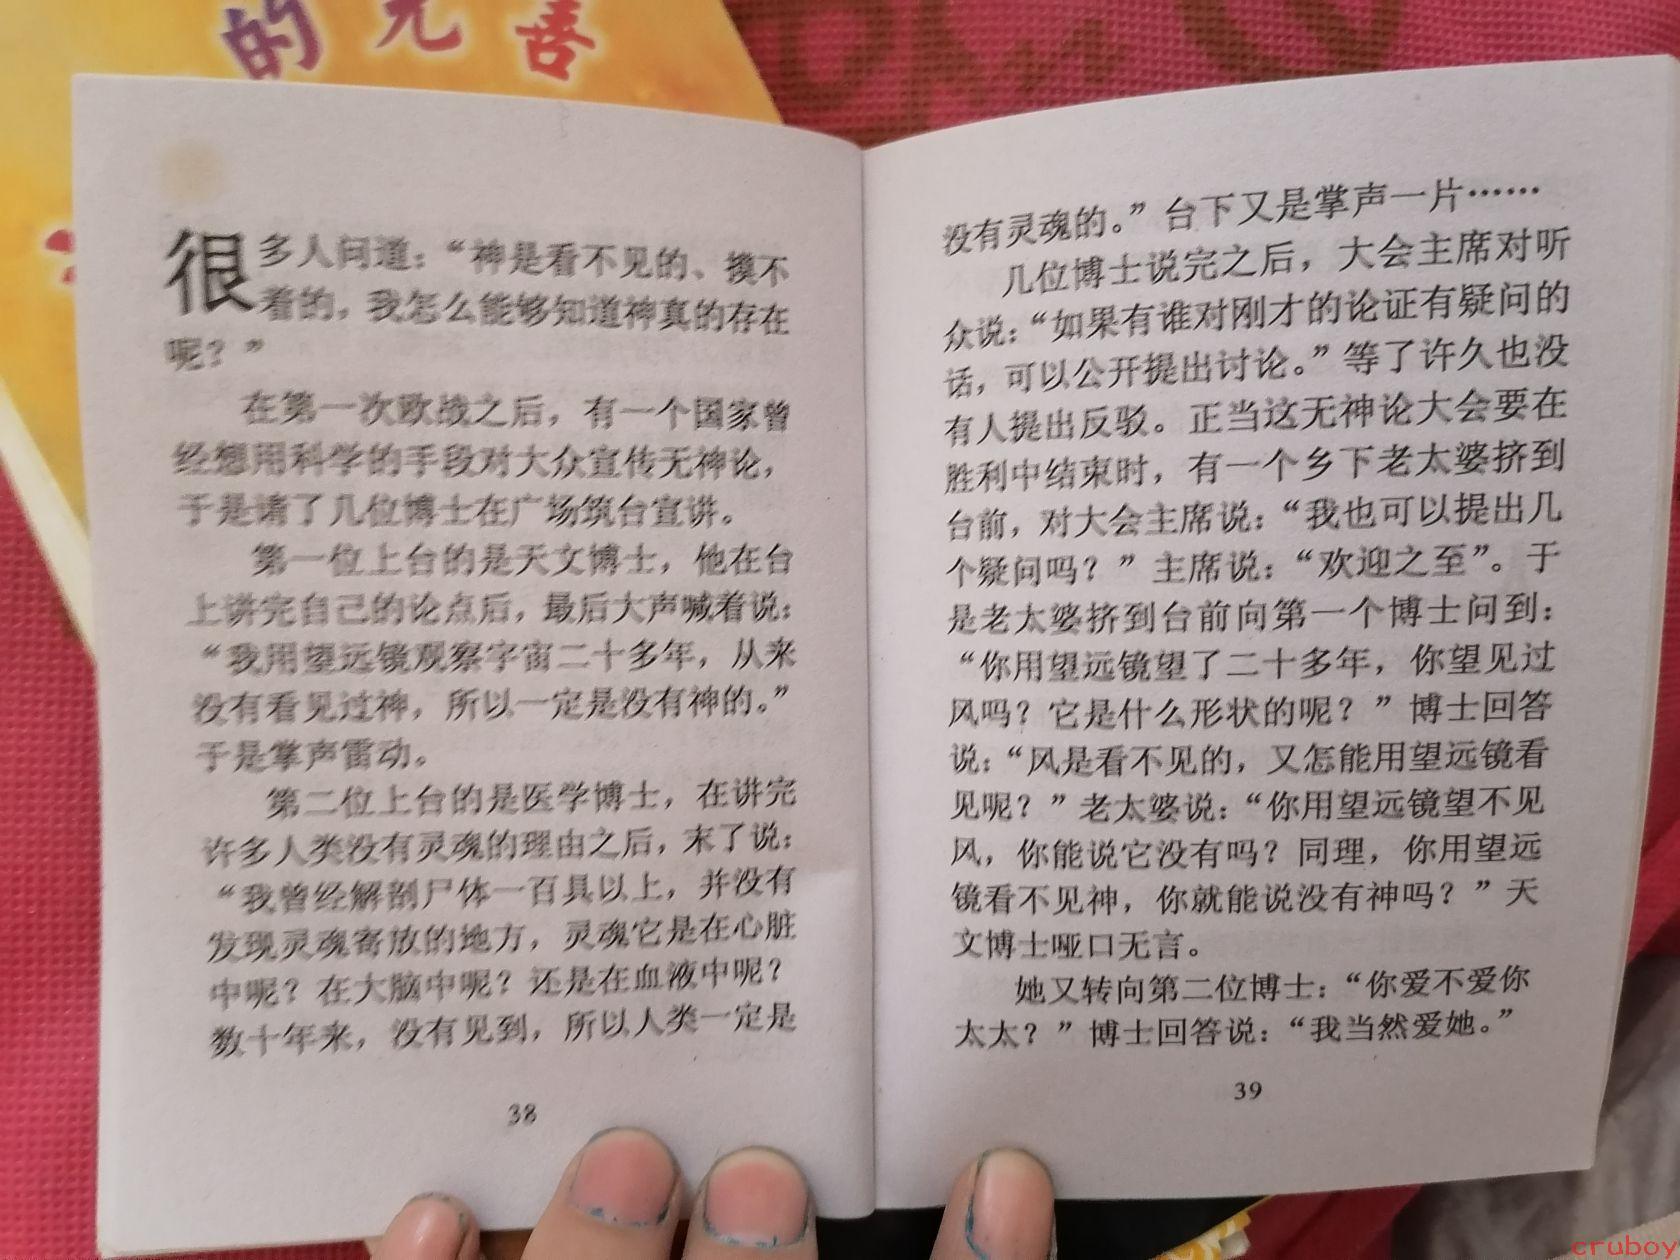 的
善
很多人问道：“神是看不见的、摸不
着的，我怎么能够知道神真的存在
呢？”
在第一次欧战之后，有一个国家曾
经想用科学的手段对大众宣传无神论，
于是请了几位博士在广场筑台宣讲。
第一位上台的是天文博士，他在台
上讲完自己的论点后，最后大声喊着说：
“我用望远镜观察宇宙二十多年，从来
没有看见过神，所以一定是没有神的。”
于是掌声雷动。
第二位上台的是医学博士，在讲完
许多人类没有灵魂的理由之后，末了说：
“我曾经解剖尸体一百具以上，并没有
发现灵魂寄放的地方，灵魂它是在心脏
中呢？在大脑中呢？还是在血液中呢？
数十年来，没有见到，所以人类一定是
38
没有灵魂的。”台下又是掌声一片……
几位博士说完之后，大会主席对听
众说：“如果有谁对刚才的论证有疑问的
话，可以公开提出讨论。”等了许久也没
有人提出反驳。正当这无神论大会要在
胜利中结束时，有一个乡下老太婆挤到
台前，对大会主席说：“我也可以提出几
个疑问吗？”主席说：“欢迎之至”。于
是老太婆挤到台前向第一个博士问到：
“你用望远镜望了二十多年，你望见过
风吗？它是什么形状的呢？”博士回答
说：“风是看不见的，又怎能用望远镜看
见呢？”老太婆说：“你用望远镜望不见
风，你能说它没有吗？同理，你用望远
镜看不见神，你就能说没有神吗？”天
文博士哑口无言。
她又转向第二位博士：“你爱不爱你
太太？”博士回答说：“我当然爱她。”
39
cruboy